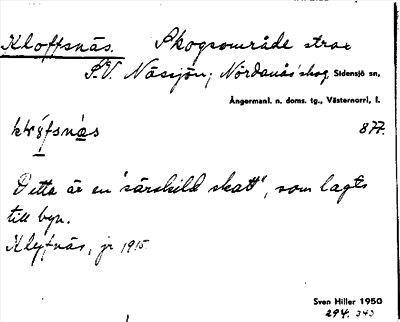 Kloffsnäs. Skogsområde strax
S.V. Nässjön, Nördanås' skog. Sidensjö sn,
Ångermanl. n. doms. tg., Västernorrl. l.
877.
Detta är en "särskild skatt", som lagts
till byn.
Klyfnäs, jr 1915.
Sven Hiller 1950
294. 343